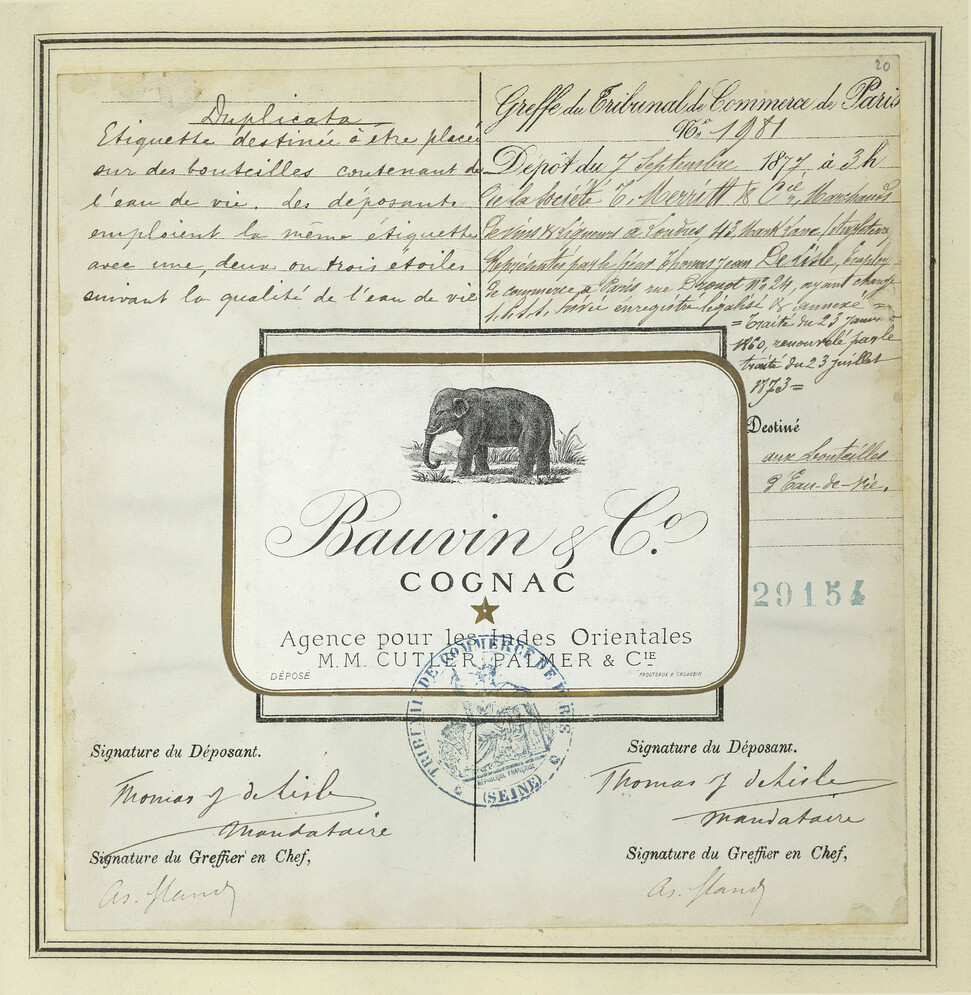 20
Duplicata
Etiquette destinée à être placée
sur des bouteilles contenant de
l'eau de vie. Les déposants
emploient la même étiquette
avec une, deux ou trois etoiles
suivant la qualité de l'eau de vie
Greffe du Tribunal de Commerce de Paris
No. 1981
Dépôt du 7 Septembre 1877, à 3h
de la Société T. Merritt & Cie, Marchands
de vins & liqueurs à Londres, 43 Mark Lane, (Angleterre)
Représentée par le Sieur Thomas Jean De Lisle, Employé
de commerce, à Paris rue Drouot No. 24, ayant charge
s.s.p. privé enregistré légalisé & annexé =
= Traité du 23 janvier
1860, renouvelé par le
traité du 23 juillet
1873 =
Destiné
aux bouteilles
d'Eau-de-Vie.
Bauvin & Co.
COGNAC
Agence pour les Indes Orientales
M.M. CUTLER, PALMER & CIE
DÉPOSÉ
PROUTEAUX & CHGAUBIN
29154
TRIBUNAL DE COMMERCE DE PARIS
RÉPUBLIQUE FRANÇAISE
(SEINE)
Signature du Déposant.
Thomas J de Lisle
Mandataire
Signature du Greffier en Chef,
Signature du Déposant.
Thomas J de Lisle
Mandataire
Signature du Greffier en Chef,